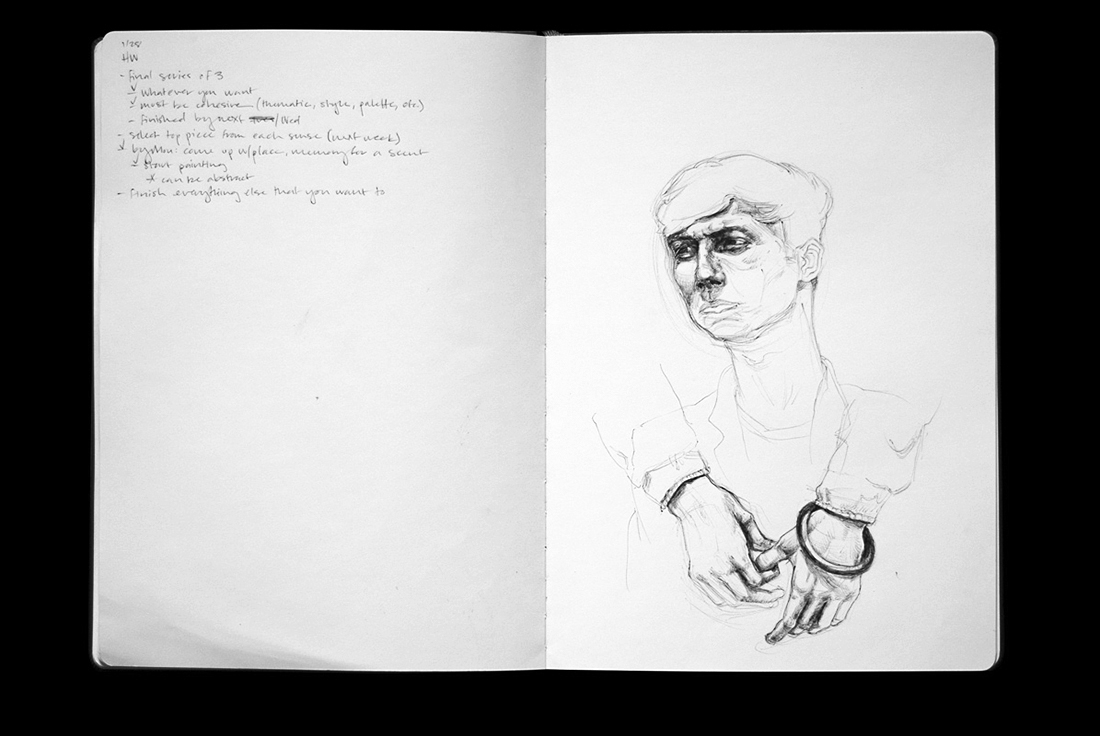 1/28
HW
- final series of 3
whatever you want
must be cohesive (thematic, style, palette, etc.)
- finished by next /Wed
- select top piece from each sense (next week)
by Mon: come up w/ place, memory for a scent
start painting
* can be abstract
- finish everything else that you want to